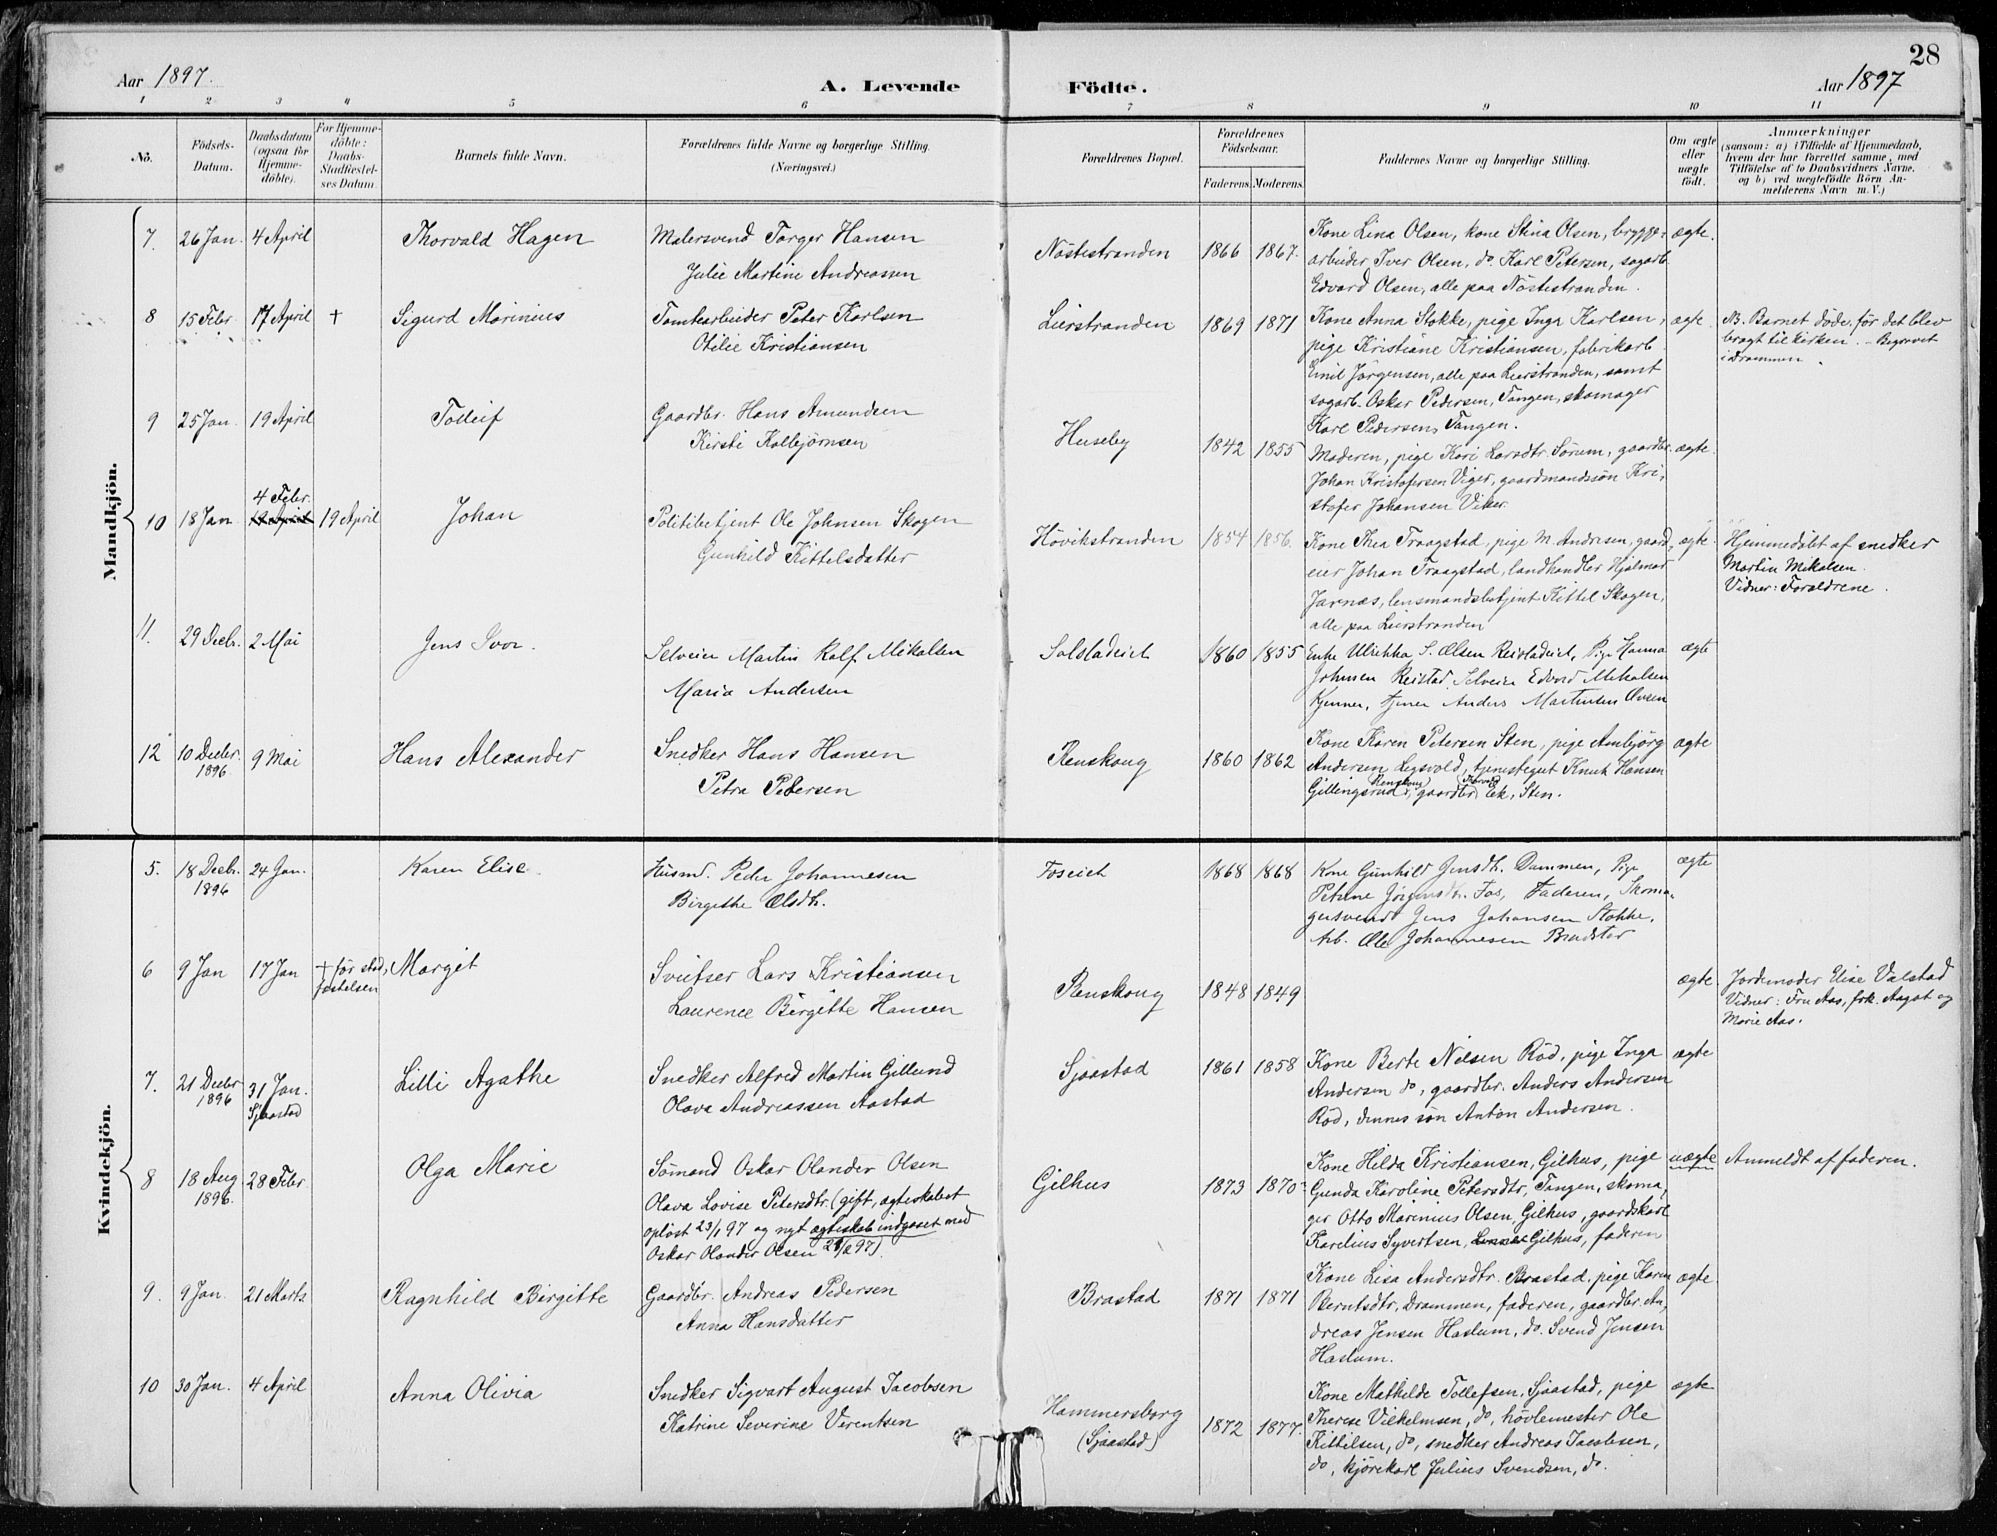 28
Aar 1897.
A. Levende
Födte.
Aar 1897
1 2 3 4 5 6 7 8 9 10 11
No.
Födsels-
Datum.
Daabsdatum
(ogsaa for
Hjemme-
döbte).
For Hjemme-
döbte:
Daabs-
Stadfæstel-
ses Datum.
Barnets fulde Navn.
Forældrenes fulde Navne og borgerlige Stilling.
(Næringsvei.)
Forældrenes Bopæl.
Forældrenes
Födselsaar.
Faderens. Moderens.
Faddernes Navne og borgerlige Stilling.
Om ægte
eller
uægte
födt.
Anmærkninger
(saasom: a) i Tilfælde af Hjemmedaab,
hvem der har forrettet samme, med
Tilföielse af to Daabsvidners Navne.
og b) ved uægtefödte Börn An-
melderens Navn m. V.)
Mandkjön.
7. 26 Jan. 4 April Thorvald Hagen
Malersvend Torger Hansen
Julie Martine Andreassen
Nöstestranden 1866 1867.
Kone Lina Olsen, kone Stina Olsen, brygge-
arbeider Iver Olsen, do. Karl Petersen, sagarb.
Edvard Olsen, alle paa Nöstestranden.
ægte.
8 15 Febr. 17 April † Sigurd Marinius
Tomtearbeider Peter Karlsen
Otilie Kristiansen
Lierstranden 1869 1871
Kone Anna Stokke, pige Inga Karlsen,
pige Kristiane Kristiansen, fabrikarb.
Emil Jörgensen, alle paa Lierstranden, samt
sagarb. Oskar Pedersen, Tangen, skomager
Karl Pedersen, Tangen.
ægte.
NB. Barnet döde, för det blev
bragt til kirken. - Begravet
i Drammen.
9 25 Jan. 19 April Tolleif
Gaardbr. Hans Amundsen
Kirsti Kolbjörnsen
Huseby 1842 1855
Moderen, pige Kari Larsdtr. Sörum, gaardbr.
Johan Kristofersen Viger, gaardmandssön Kri-
stofer Johansen Viker.
ægte.
10 18 Jan. 4 Febr. 19 April 19 April Johan
Politibetjent Ole Johnsen Skogen
Gunhild Kittelsdatter
Hövikstranden 1854 1856.
Kone Thea Traagstad, pige M. Andresen, gaard-
eier Johan Traagstad, landhandler Hjalmar
Jarnæs, lensmandsbetjent Kittel Skogen,
alle paa Lierstranden
ægte.
Hjemmedöbt af snedker
Martin Mikalsen.
Vidner: Forældrene.
11. 29 Decb. 2 Mai Jens Ivor.
Selveier Martin Ralf Mikalsen
Maria Andersen
1860 1855
Enke Ulrikka S. Olsen Pige Hanna
Johnsen Reistad, Selveier Edvard Mikalsen
Kjenner, tjener Anders Martinsen
ægte
12 10 Decbr. 1896 9 Mai Hans Alexander
Snedker Hans Hansen
Petra Petersen
Renskoug 1860 1862
Kone Karen Petersen Sten, pige Anbjörg
Andersen Legsvold, tjenestegut Knut Hansen
Gillingsrud, Renskoug, gaardbr. Ek, Sten.
ægte
Kvindekjön.
5. 18 Decb. 1896 24 Jan. Karen Elise.
Husmd. Peder Johannesen
Birgithe Olsdtr.
Foseiet 1868 1868
Kone Gunhild Jensdtr. Dammen, Pige
Petrine Jörgensdtr. Fos, Faderen, Skoma-
gersvend Jens Johansen Stokke,
Arb. Ole Johannesen
ægte
6 9 Jan 17 Jan † før stad-
festelsen Margit
Sveitser Lars Kristiansen
Laurence Birgitte Hansen
Renskoug 1848 1849
ægte.
Jordemoder Elise Valstad
Vidner: Fru Aas, frk. Aagot og
Marie Aas.
7. 21 Decbr 1896 31 Jan. Sjaastad Lilli Agathe
Snedker Alfred Martin Gillund
Olava Andreassen Aastad
Sjaastad 1861 1858
Kone Berte Nilsen Röd, pige Inga
Andersen do, gaardbr. Anders Andersen
Röd, dennes sön Anton Andersen.
ægte
8 18 Aug 1896. 28 Febr. Olga Marie
Sömand Oskar Olander Olsen
Olava Lovise Petersdtr. (gift, ægteskabet
oplöst 23/1 97 og nyt ægteskab indgaaet med
Oskar Olander Olsen 97).
Gilhus 1873 1870
Kone Hilda Kristiansen, Gilhus, pige
Gunda Karoline Petersdtr, Tangen, skoma-
ger Otto Marinius Olsen, Gilhus, gaardskarl
Karelius Syvertsen, Gilhus, faderen
uægte
Anmeldt af faderen.
9. 9 Jan. 21 Marts Ragnhild Birgitte
Gaardbr. Andreas Pedersen
Anna Hansdatter
Brastad 1871 1871
Kone Lisa Andersdtr. Brastad, pige Karen
Berntsdtr, Drammen, faderen, gaardbr. An-
dreas Jensen Haslum, do. Svend Jensen
Haslum.
ægte
10 30 Jan. 4 April Anna Olivia
Snedker Sigvart August Jacobsen
Katrine Severine Verentsen
Hammersborg
(Sjaastad) 1872 1877.
Kone Mathilde Tollefsen, Sjaastad, pige
Therese Vilhelmsen, do, hövlemester Ole
Kittilsen, do, snedker Andreas Jacobsen,
do, kjörekarl Julius Svendsen, do.
ægte